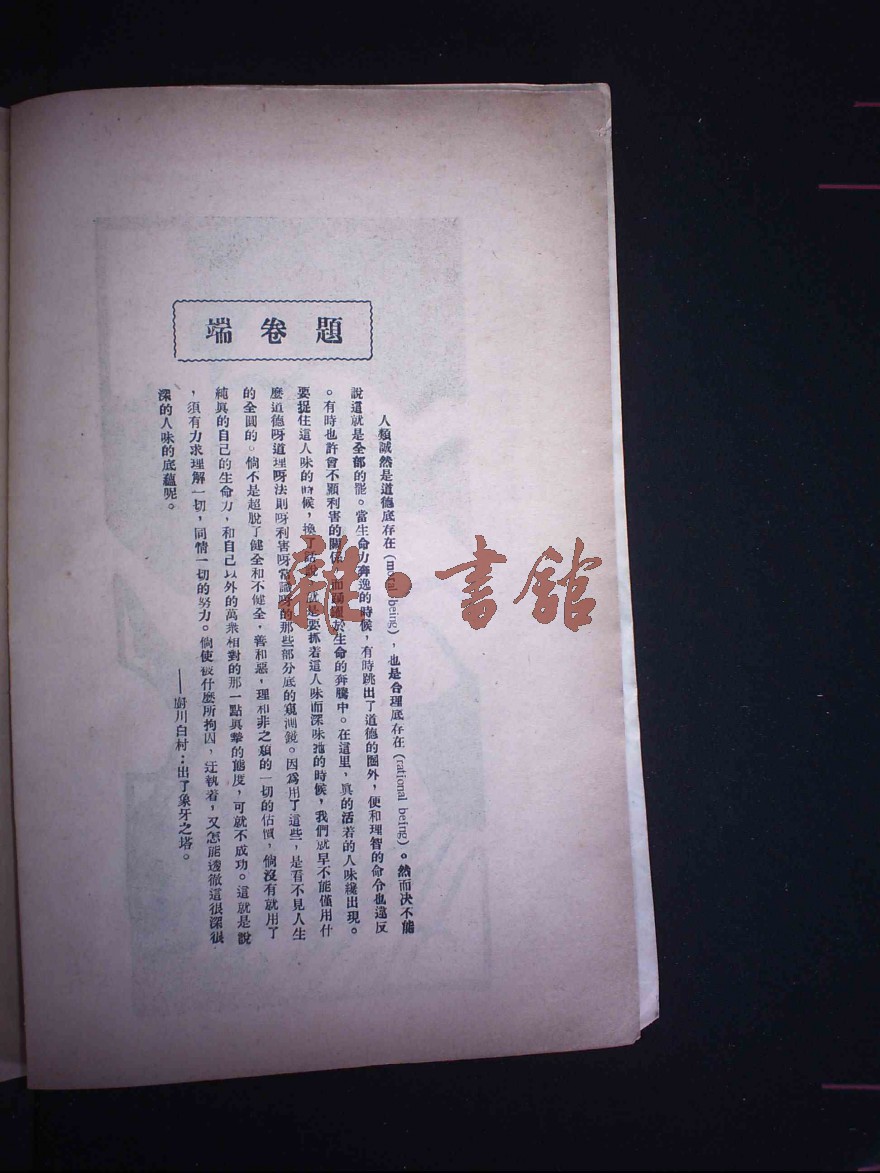 題卷端
人類誠然是道德底存在(moral being)，也是合理底存在(rational being)。然而決不能
說這就是全部的罷。當生命力奔逸的時候，有時跳出了道德的圈外，便和理智的命令也違反
。有時也許會不顧利害的關係，而踴躍於生命的奔騰中。在這里，眞的活着的人味纔出現。
要捉住這人味的時候，換了話說，就是要抓着這人味而深味牠的時候，我們就早不能僅用什
麼道德呀道理呀法則呀利害呀常識呀的那些部分底的窺測鏡。因爲用了這些，是看不見人生
的全圓的。倘不是超脫了健全和不健全，善和惡，理和非之類的一切的估價，倘沒有就用了
純眞的自己的生命力，和自己以外的萬衆相對的那一點眞摯的態度，可就不成功。這就是說
，須有力求理解一切，同情一切的努力。倘使被什麼所拘囚，迂執着，又怎能透徹這很深很
深的人味的底蘊呢。
——廚川白村：出了象牙之塔。
雜·書館